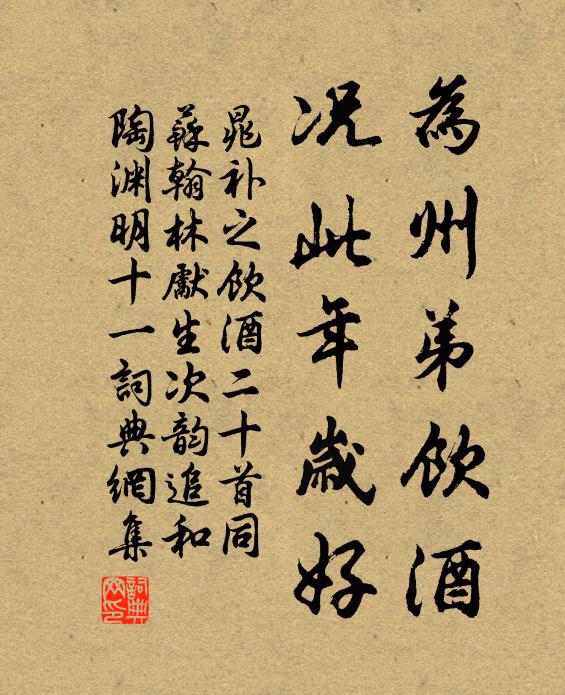 為州弟飲酒
況此年歲好
晁补之飲酒二十首同
蘇翰林獻生次韵追和
陶渊明十一詞典網集
詞典网印